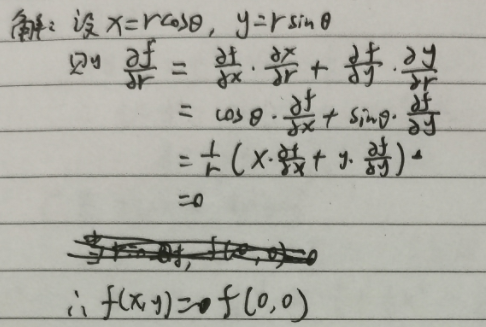 解：设 x=rcosθ, y=rsinθ
则 ∂f/∂r = ∂f/∂x · ∂x/∂r + ∂f/∂y · ∂y/∂r
= cosθ · ∂f/∂x + sinθ · ∂f/∂y
= 1/r (x · ∂f/∂x + y · ∂f/∂y)
=0
∴ f(x,y)= f(0,0)